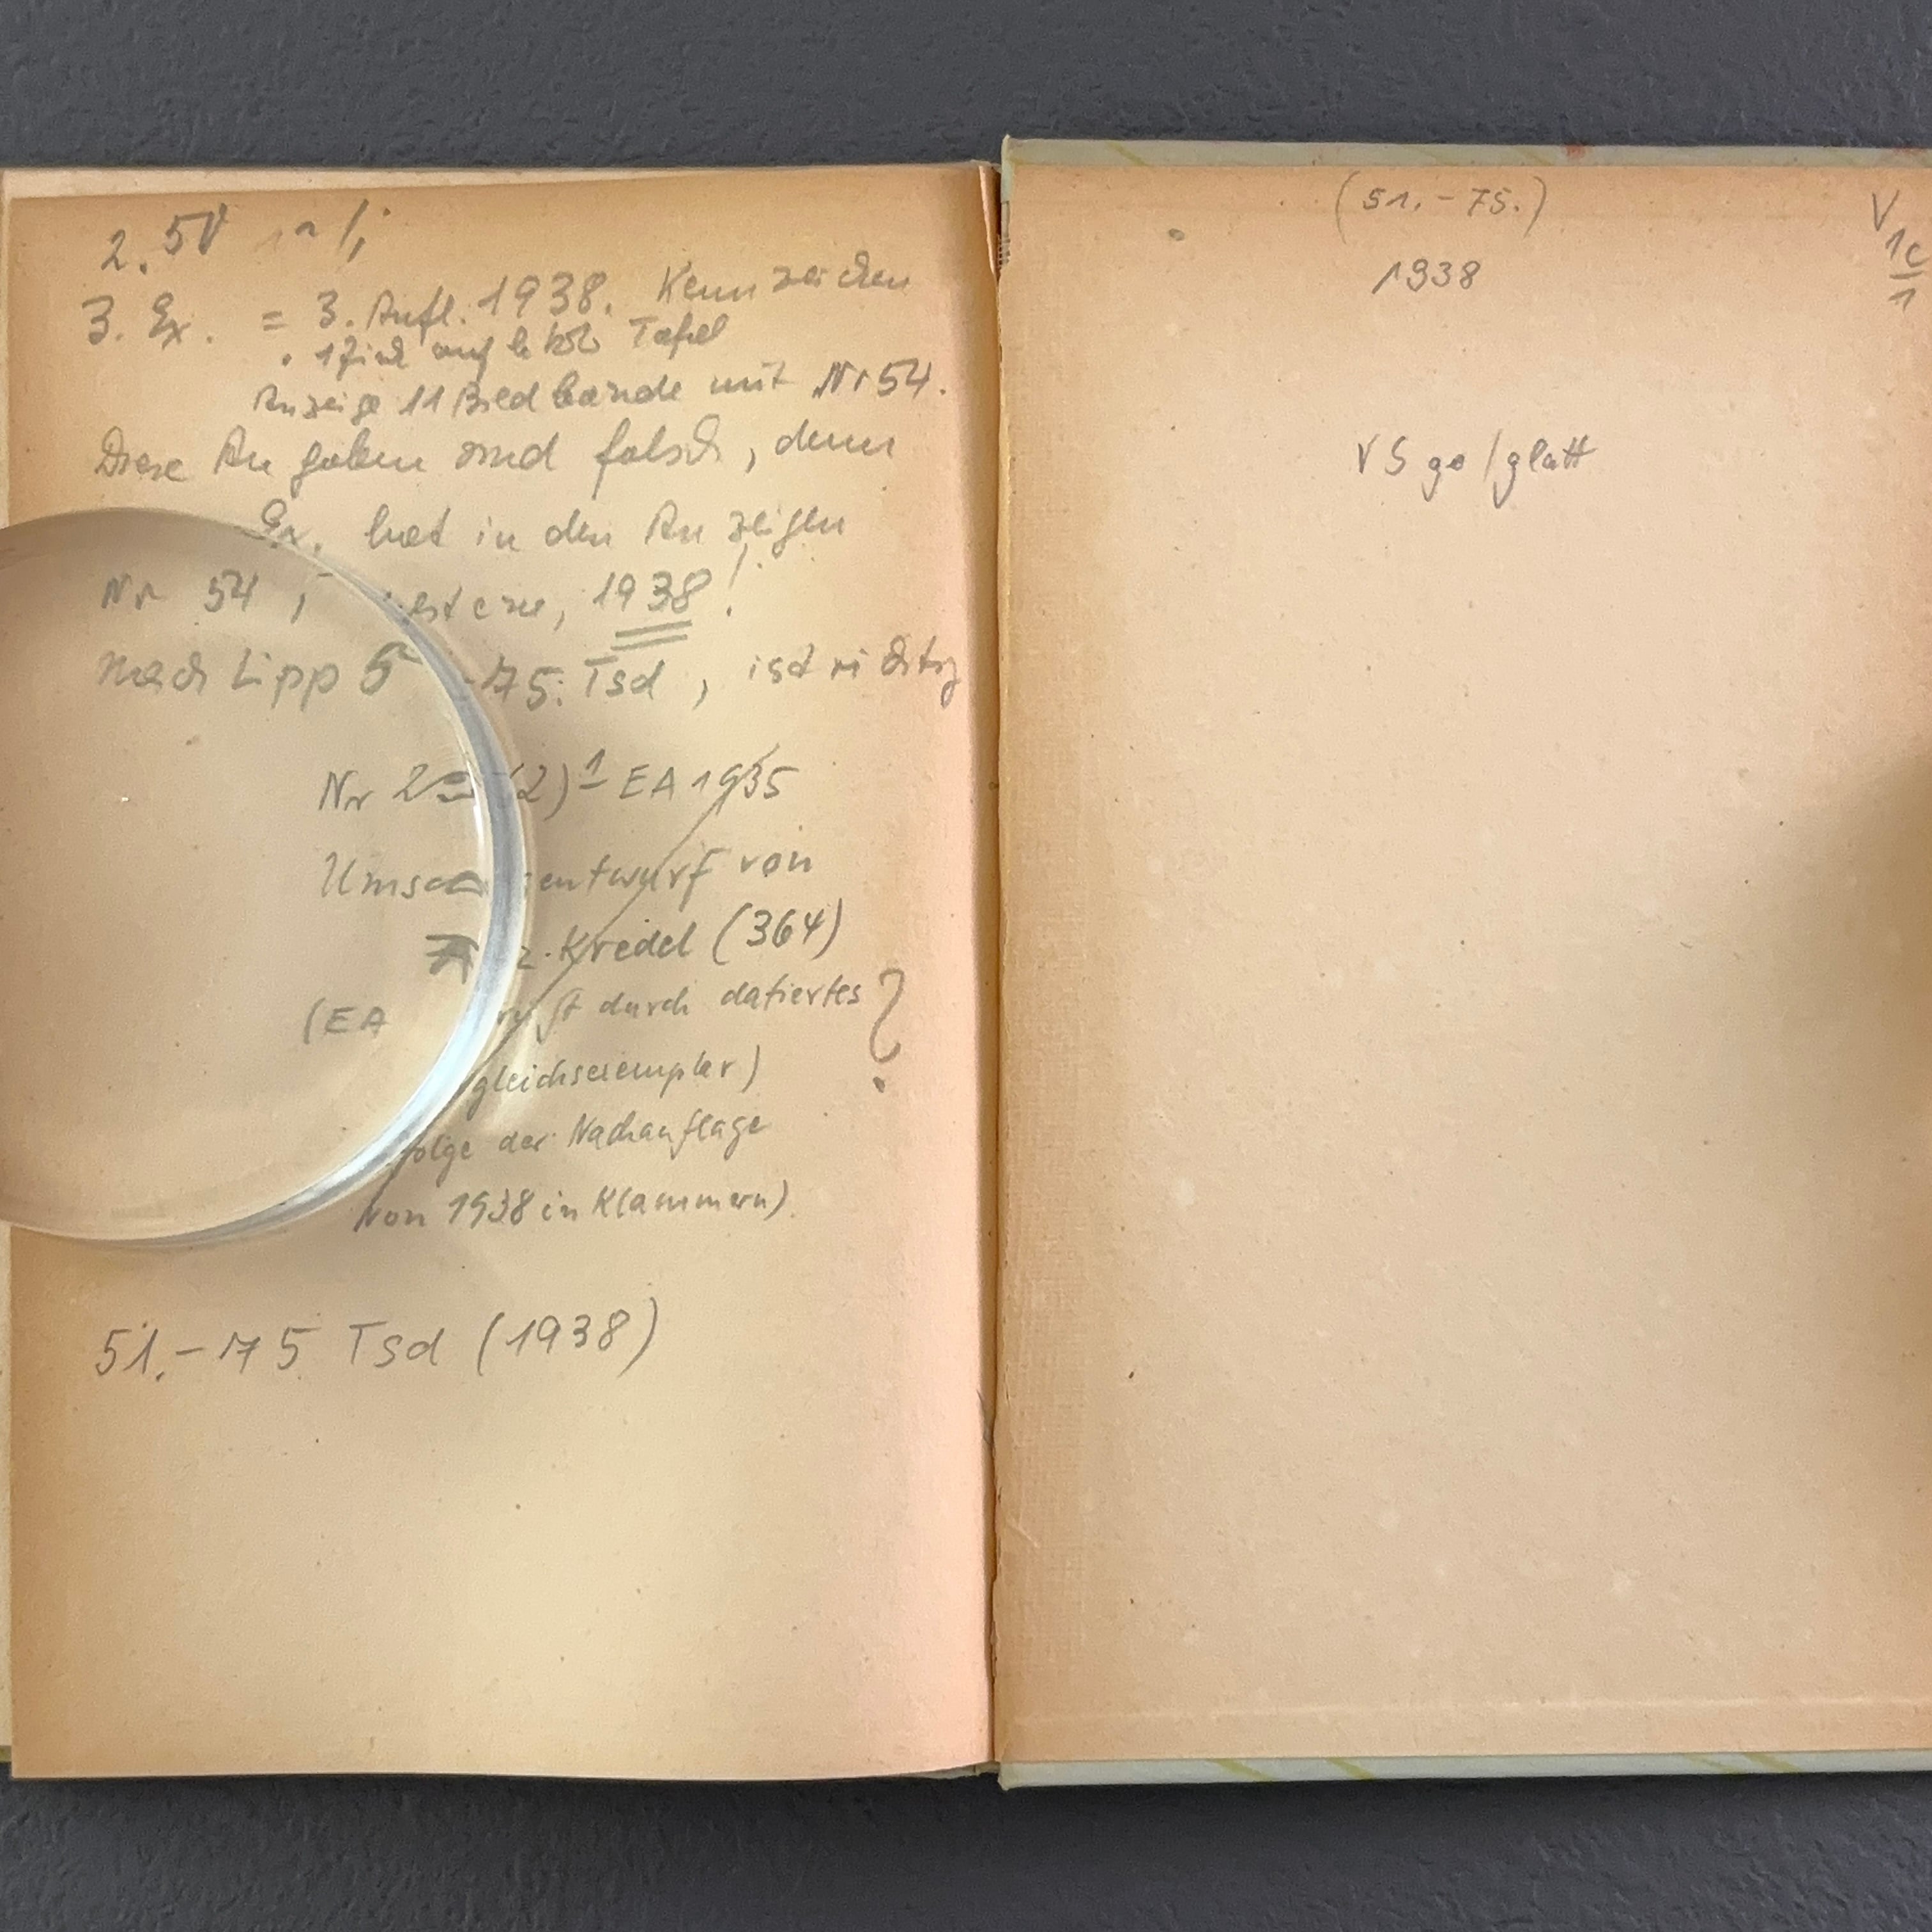 2.
3. Ex. = 3. Aufl. 1938. Kennzeichen
Tafel
Anzeige 11 Bildbände mit Nr 54.
Diese Angaben sind falsch, denn
Ex. hat in den Anzeigen
Nr 54, 1938!
nach Lipp 75. Tsd, ist richtig
Nr (2) 1 EA 1935
entwurf von
Kredel (364)
(EA durch datiertes ?
gleichsexemplar)
folge der Nachauflage
von 1938 in Klammern)
51.-75 Tsd (1938)
(51.-75.)
1938
V
1c
1
VS go/glatt